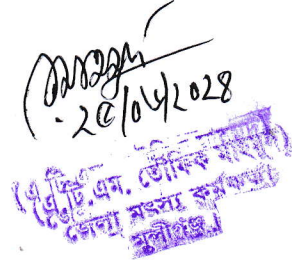 ২৫/০৬/২০২৪
এ.টি.এম. তৌফিক
জেলা মৎস্য কর্মকর্তা
মুন্সীগঞ্জ।